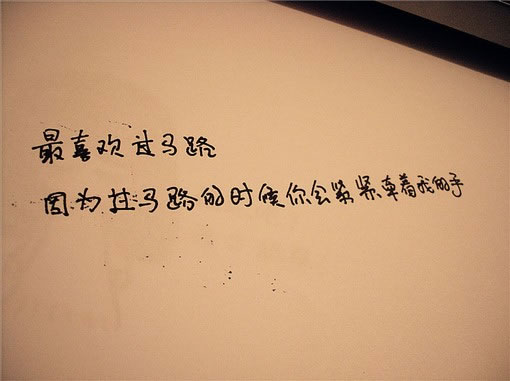 最喜欢过马路
因为过马路的时候你会紧紧牵着我的手